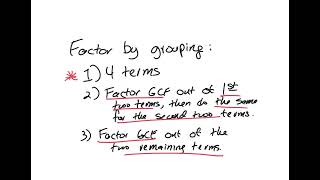 Factor by grouping:
* 1) 4 terms
2) Factor GCF out of 1st
two terms, then do the same
for the second two terms.
3) Factor GCF out of the
two remaining terms.